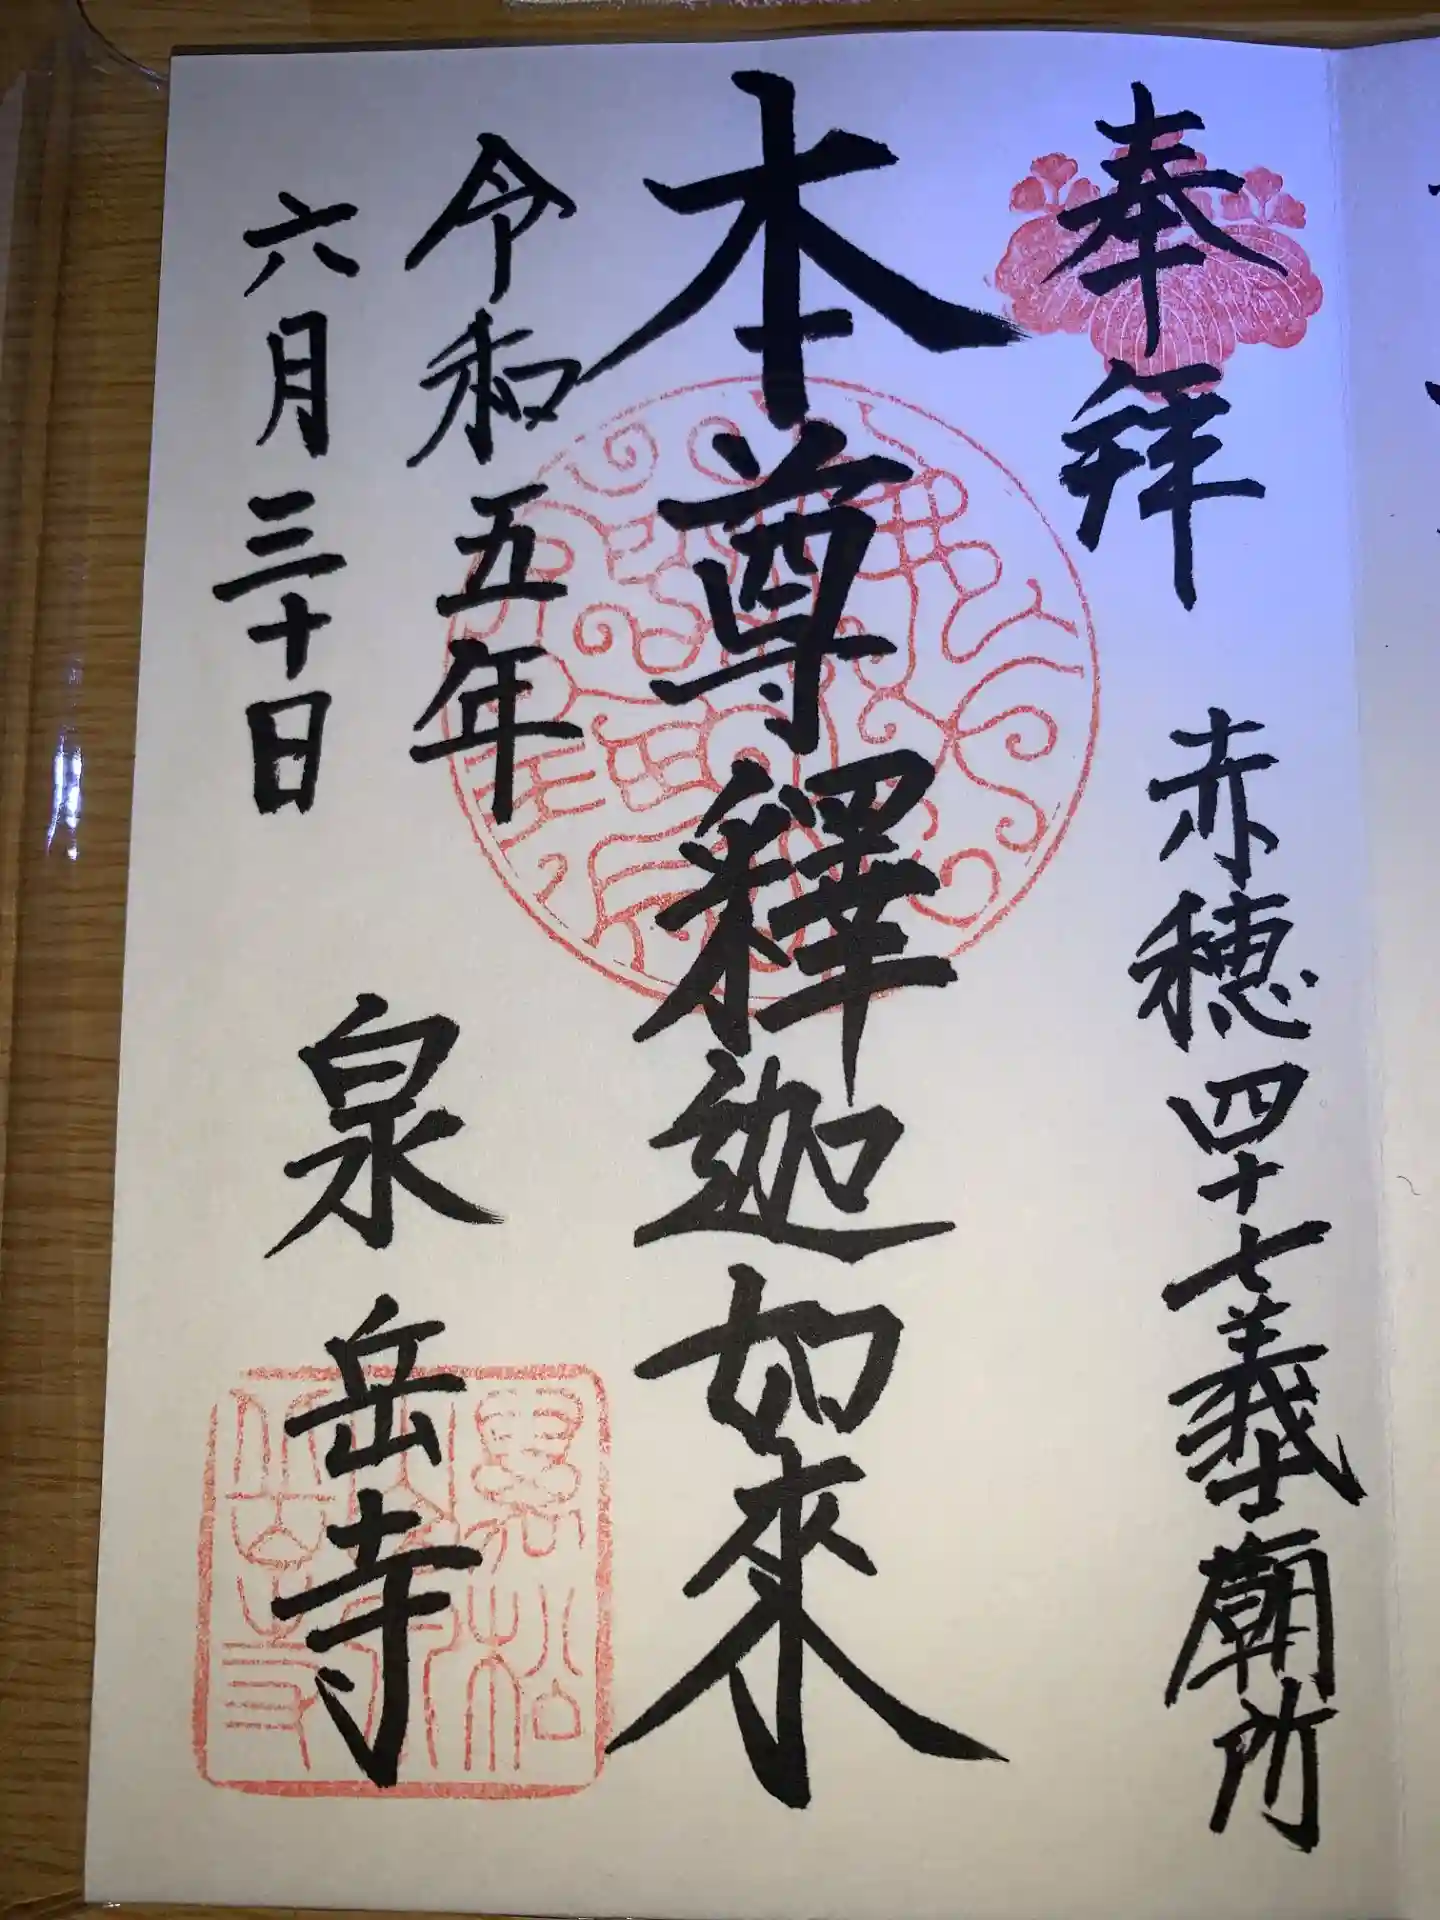 奉拝 赤穂四十七義士廟所
本尊釋迦如來
令和五年
六月三十日
泉岳寺